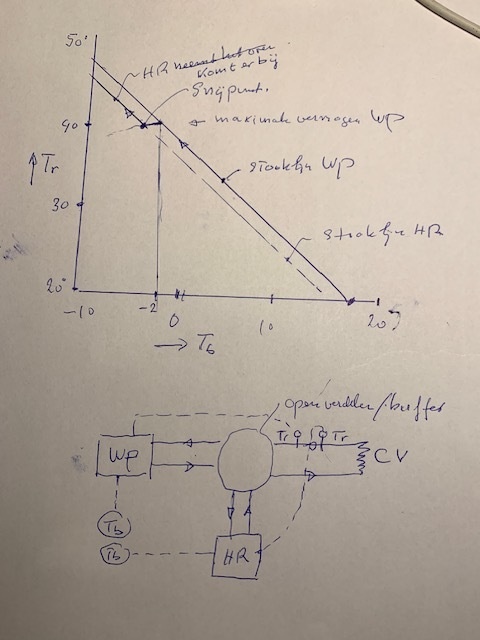 50°
HR neemt het over
komt er bij
Snijpunt.
40
← maximale vermogen WP
↑ Tr
stooklijn WP
30
stooklijn HR
20°
-10
-2
0
10
20
→ Tb
open verdeler/buffer
WP
Tr
Tr
CV
Tb
Tb
HR